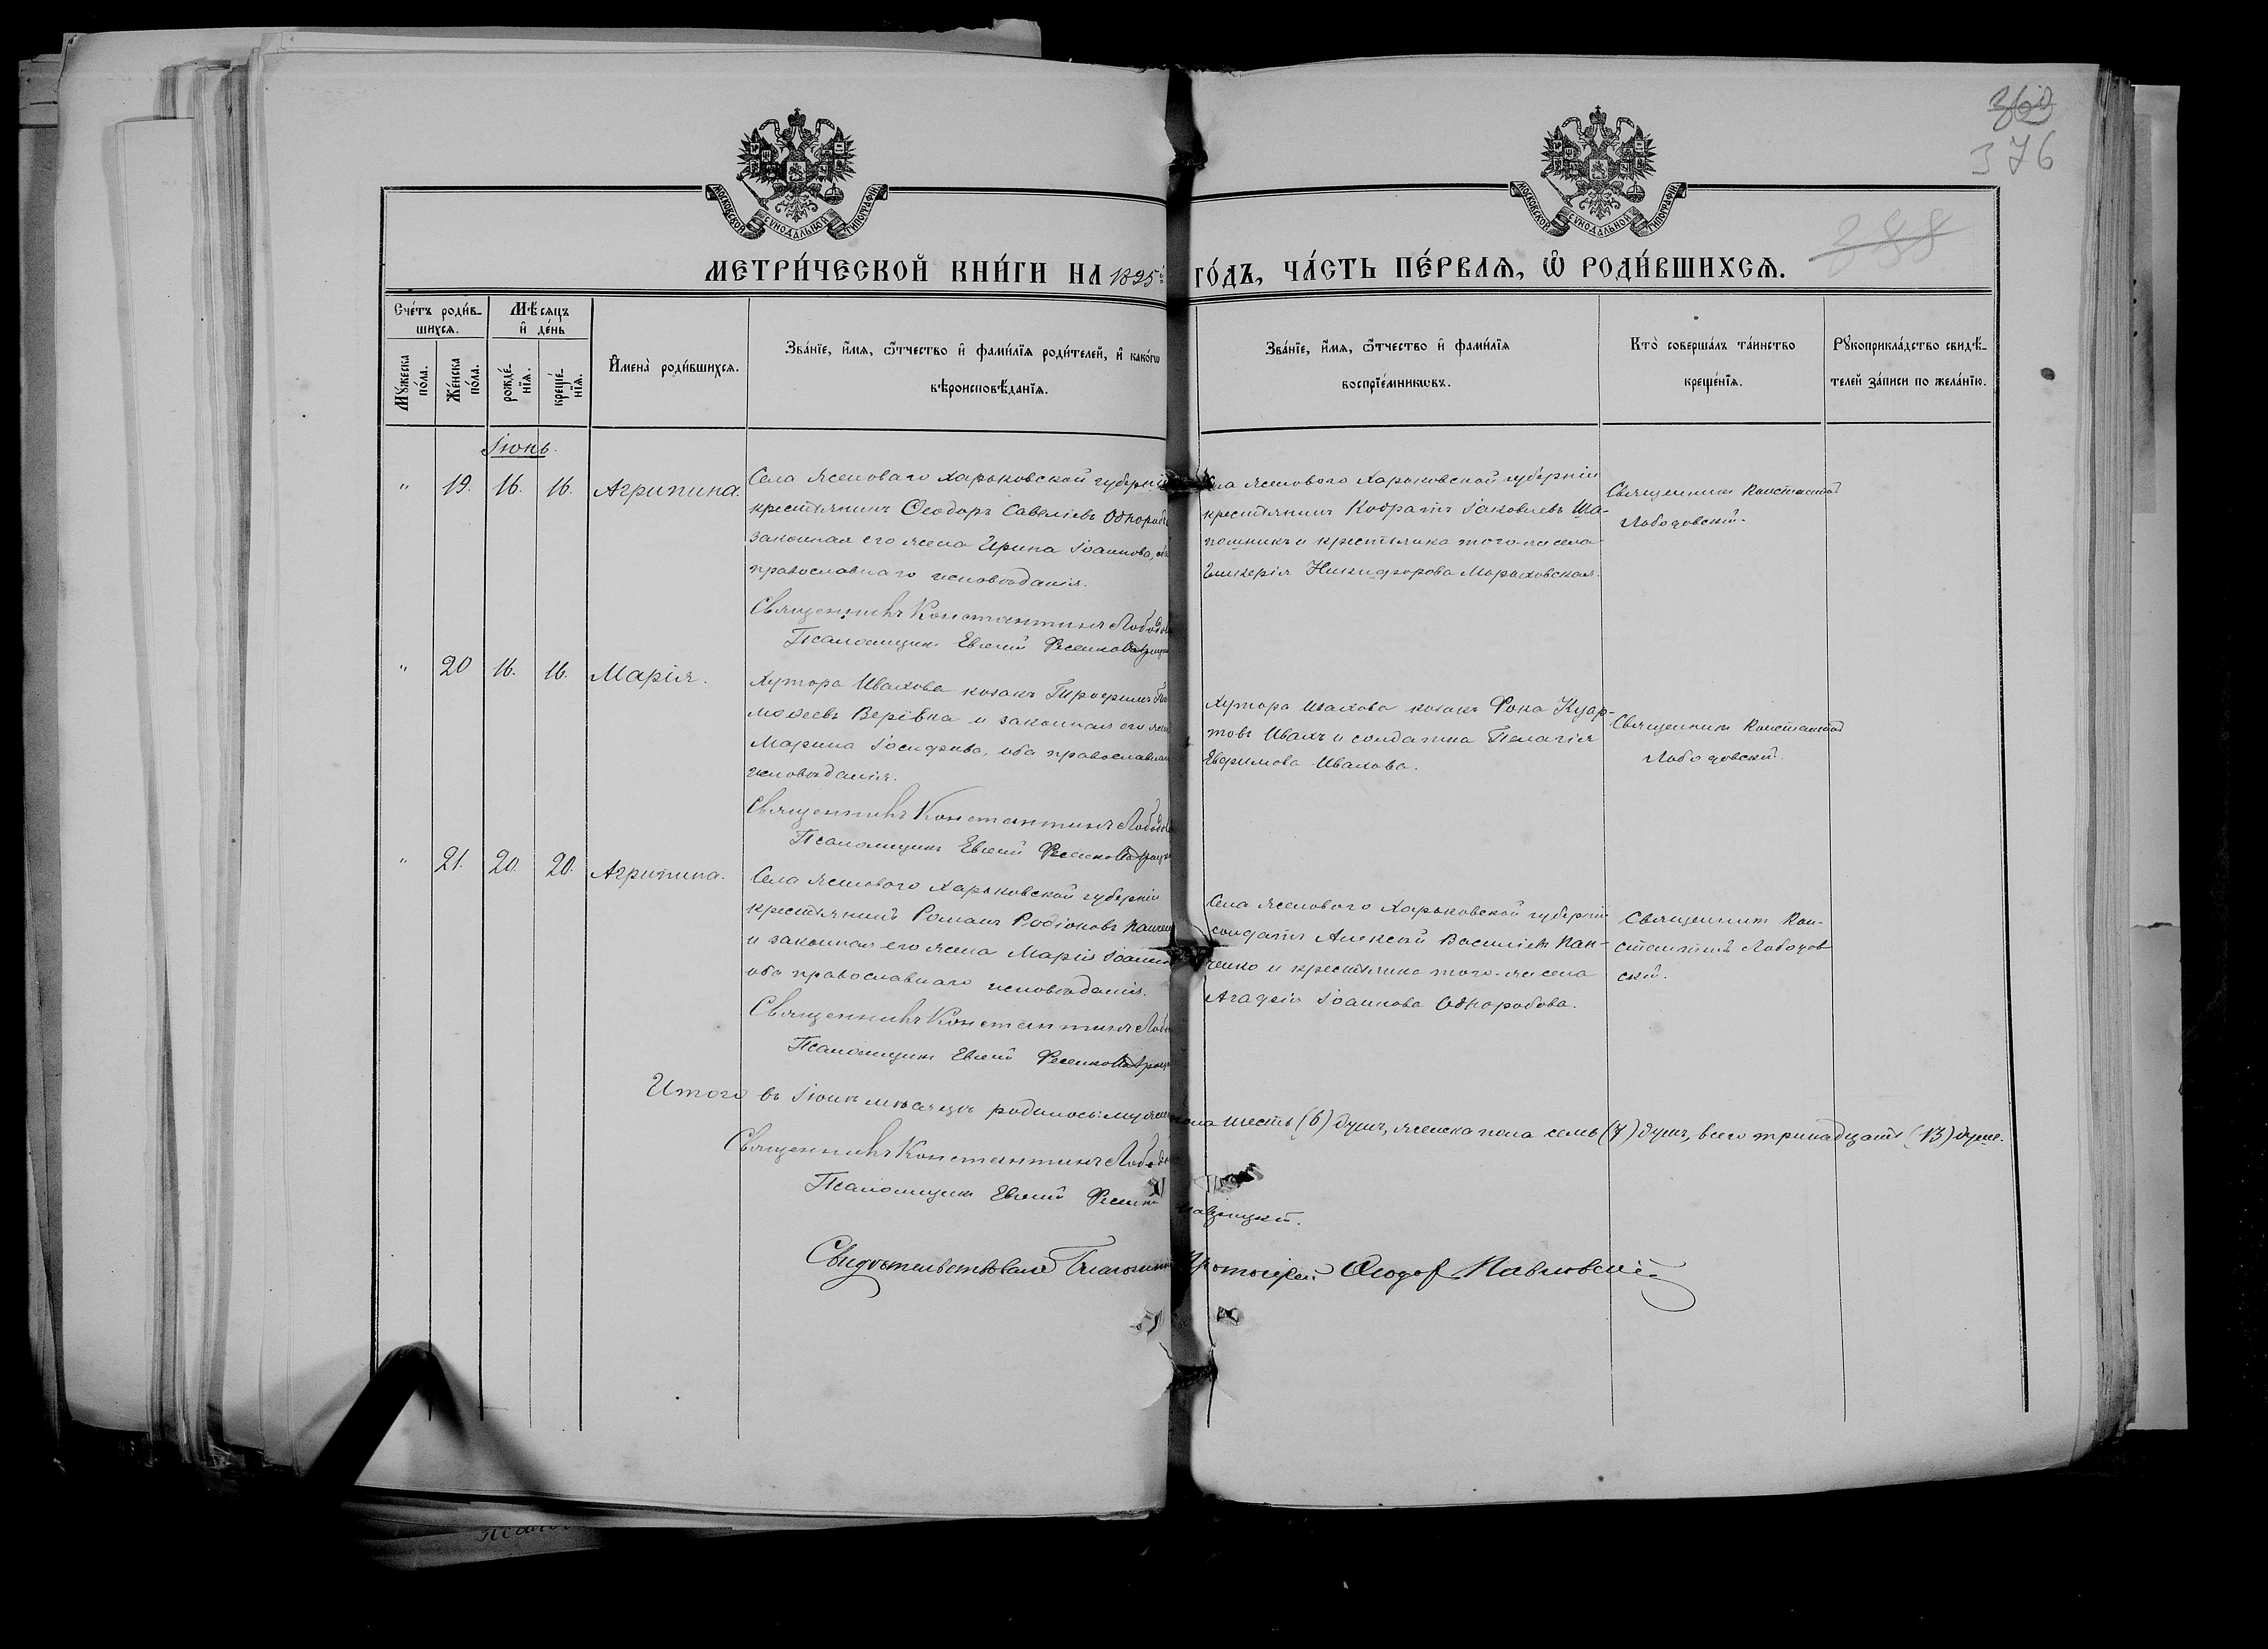 363
376
388
МОСКОВСКОЙ СѴНОДАЛЬНОЙ ТИПОГРАФІИ
МОСКОВСКОЙ СѴНОДАЛЬНОЙ ТИПОГРАФІИ
МЕТРИ́ЧЕСКОЙ КНИ́ГИ НА 1895й ГО́ДЪ, ЧА́СТЬ ПЕ́РВАЯ, Ѽ РОДИ́ВШИХСЯ.
Сче́тъ роди́в-
шихся.
Мѣ́сяцъ
и҆ де́нь
Мꙋ́жеска
по́ла.
Же́нска
по́ла.
рожде́-
нїя.
креще́-
нїя.
И҆мена̀ роди́вшихся.
Зва́нїе, и҆́мя, ѻ҆́тчество и҆ фами́лїя роди́телей, и҆ како́гѡ
вѣроисповѣ́данїя.
Зва́нїе, и҆́мя, ѻ҆́тчество и҆ фами́лїя
воспрїе́мникѡвъ.
Кто̀ соверша́лъ та́инство
креще́нїя.
Рꙋкоприкла́дство свидѣ́-
телей за́писи по жела́нїю.
Іюнь.
" 19. 16. 16. Агрипина.
Села Ясеноваго Харьковской губерніи
крестьянинъ Ѳеодоръ Савеліевъ Однороб
законная его жена Ирина Іоаннова, об
православнаго исповѣданія.
Священникъ Константинъ Лободов
Псаломщикъ Евгеній Фесенко
Села Ясенового Харьковской губерніи
крестьянинъ Кодратъ Іаковлевъ Ша-
пошникъ и крестьянка того-же села
Гликерія Никифорова Мораховская.
Священникъ Константинъ
Лободовскій.
" 20 16. 16. Марія.
Хутора Ивахова козакъ Трофимъ Ти
моѳеевъ Верёвка и законная его жен
Марина Іосифова, оба православнаг
исповѣданія.
Священникъ Константинъ Лободов
Псаломщикъ Евгеній Фесенко
Хутора Ивахова козакъ Фока Куар-
товъ Ивахъ и солдатка Пелагія
Евфимова Ивахова.
Священникъ Константинъ
Лободовскій.
" 21. 20. 20. Агрипина.
Села Ясенового Харьковской губерніи
крестьянинъ Романъ Родіоновъ Панчен
и законная его жена Марія Іоаннов
оба православнаго исповѣданія.
Священникъ Константинъ Лобо
Псаломщикъ Евгеній Фесенко
Села Ясенового Харьковской губерніи
солдатъ Алексѣй Василіевъ Пан-
ченко и крестьянка того-же села
Агафія Іоаннова Одноробова.
Священникъ Кон-
стантинъ Лободов
скій.
Итого въ Іюнѣ мѣсяцѣ родилось: мужеска пола шесть (6) душъ, женска пола семь (7) душъ, всего тринадцать (13) душъ.
Священникъ Константинъ Лободов
Псаломщикъ Евгеній Фесенко
Свидѣтельствовалъ Благочинный Протоіерей Ѳеодоръ Павловскій